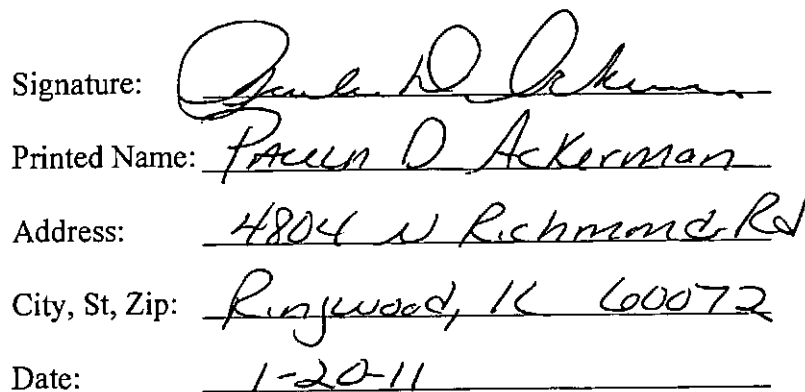 Signature: Paula D. Ackerman
Printed Name: PAULA D Ackerman
Address: 4804 N Richmond Rd
City, St, Zip: Ringwood, IL 60072
Date: 1-20-11